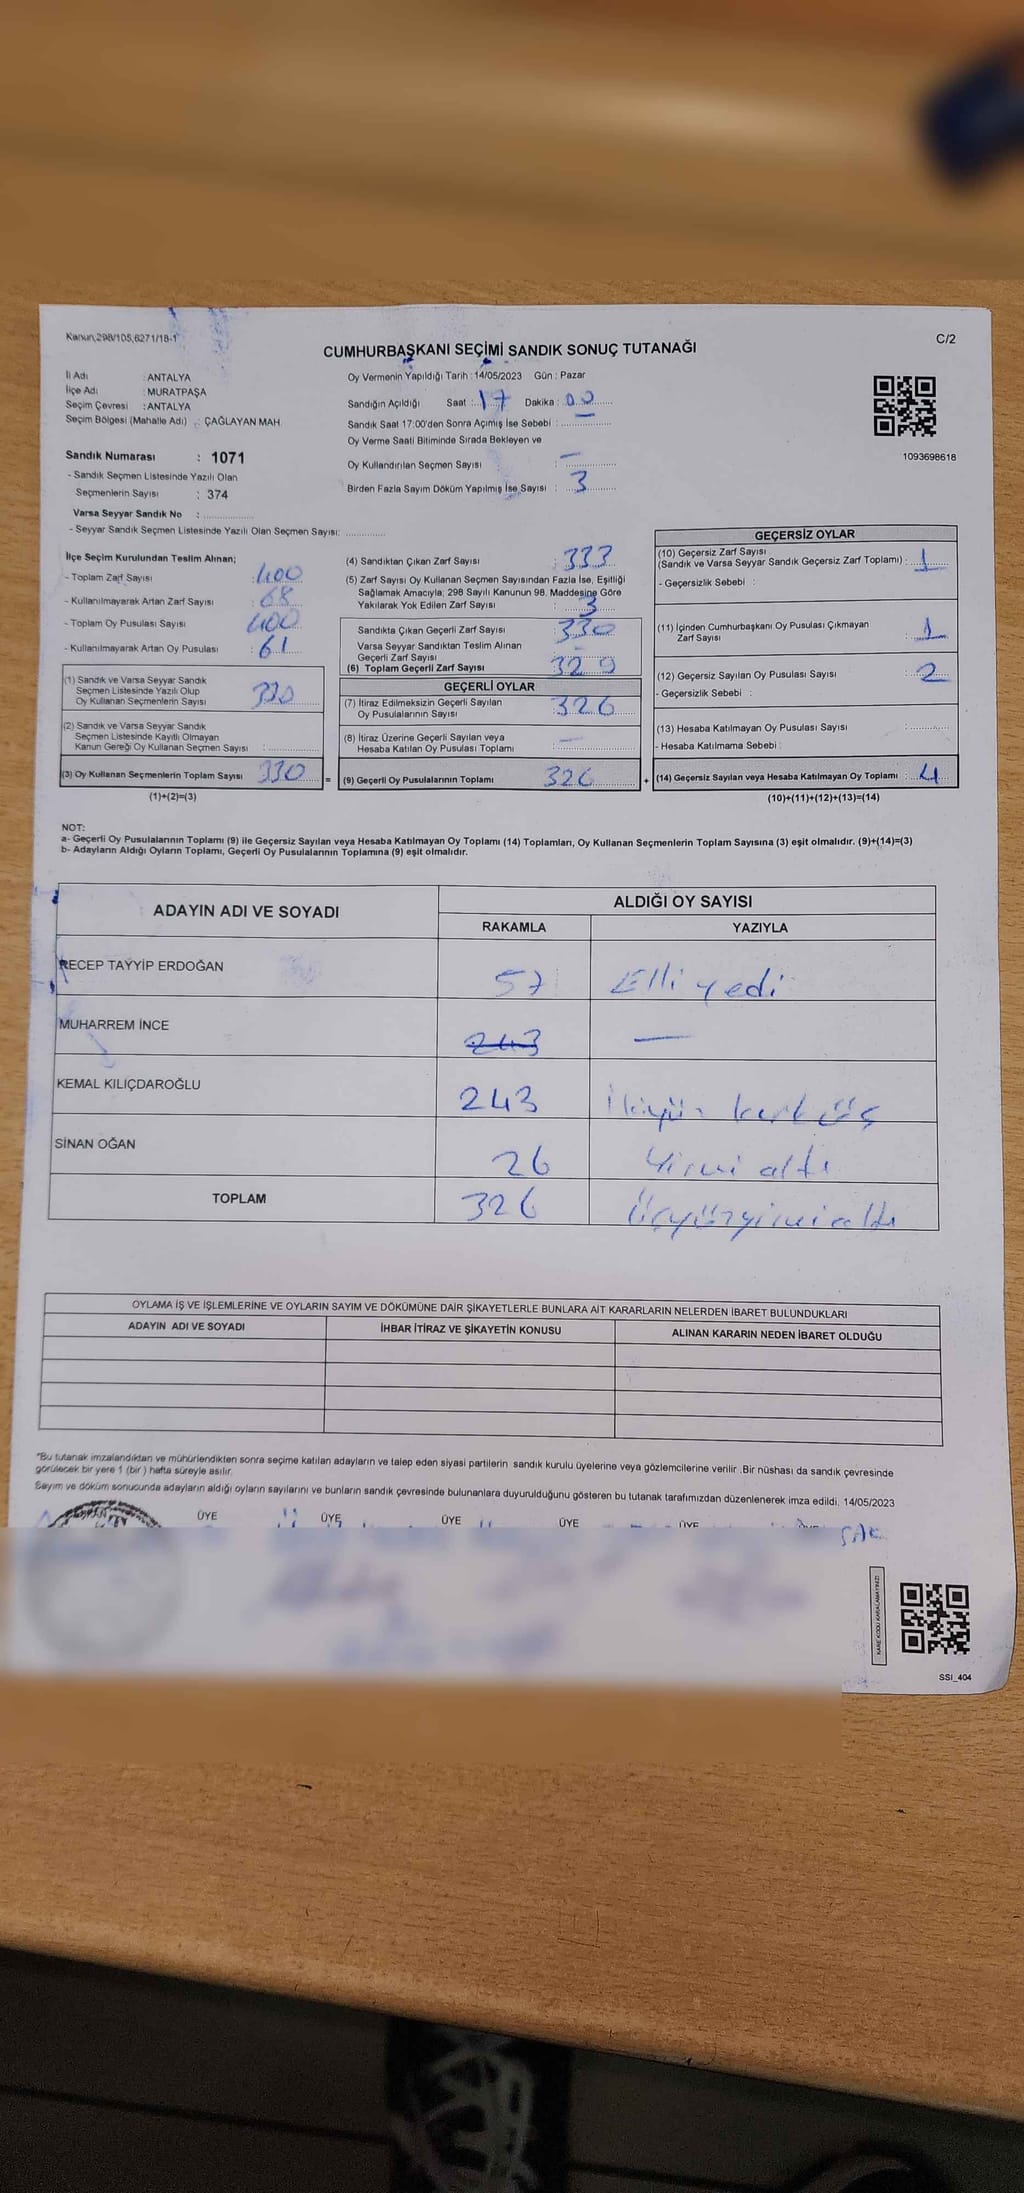 Kanun,298/105,6271/18-1
C/2
CUMHURBAŞKANI SEÇİMİ SANDIK SONUÇ TUTANAĞI
İl Adı : ANTALYA
İlçe Adı : MURATPAŞA
Seçim Çevresi : ANTALYA
Seçim Bölgesi (Mahalle Adı) : ÇAĞLAYAN MAH.
Sandık Numarası : 1071
- Sandık Seçmen Listesinde Yazılı Olan
Seçmenlerin Sayısı : 374
Varsa Seyyar Sandık No :
- Seyyar Sandık Seçmen Listesinde Yazılı Olan Seçmen Sayısı:
Oy Vermenin Yapıldığı Tarih : 14/05/2023 Gün : Pazar
Sandığın Açıldığı Saat : 17 Dakika : 00
Sandık Saat 17:00'den Sonra Açılmış İse Sebebi : —
Oy Verme Saati Bitiminde Sırada Bekleyen ve
Oy Kullandırılan Seçmen Sayısı : —
Birden Fazla Sayım Döküm Yapılmış İse Sayısı : 3
1093698618
İlçe Seçim Kurulundan Teslim Alınan;
- Toplam Zarf Sayısı : 400
- Kullanılmayarak Artan Zarf Sayısı : 68
- Toplam Oy Pusulası Sayısı : 400
- Kullanılmayarak Artan Oy Pusulası : 61
(1) Sandık ve Varsa Seyyar Sandık
Seçmen Listesinde Yazılı Olup
Oy Kullanan Seçmenlerin Sayısı : 330
(2) Sandık ve Varsa Seyyar Sandık
Seçmen Listesinde Kayıtlı Olmayan
Kanun Gereği Oy Kullanan Seçmen Sayısı :
(3) Oy Kullanan Seçmenlerin Toplam Sayısı : 330
(1)+(2)=(3)
=
(4) Sandıktan Çıkan Zarf Sayısı : 333
(5) Zarf Sayısı Oy Kullanan Seçmen Sayısından Fazla İse, Eşitliği
Sağlamak Amacıyla; 298 Sayılı Kanunun 98. Maddesine Göre
Yakılarak Yok Edilen Zarf Sayısı : 3
Sandıkta Çıkan Geçerli Zarf Sayısı : 330
Varsa Seyyar Sandıktan Teslim Alınan
Geçerli Zarf Sayısı : —
(6) Toplam Geçerli Zarf Sayısı : 329
GEÇERLİ OYLAR
(7) İtiraz Edilmeksizin Geçerli Sayılan
Oy Pusulalarının Sayısı : 326
(8) İtiraz Üzerine Geçerli Sayılan veya
Hesaba Katılan Oy Pusulası Toplamı : —
(9) Geçerli Oy Pusulalarının Toplamı : 326
+
GEÇERSİZ OYLAR
(10) Geçersiz Zarf Sayısı
(Sandık ve Varsa Seyyar Sandık Geçersiz Zarf Toplamı) : 1
- Geçersizlik Sebebi :
(11) İçinden Cumhurbaşkanı Oy Pusulası Çıkmayan
Zarf Sayısı : 1
(12) Geçersiz Sayılan Oy Pusulası Sayısı : 2
- Geçersizlik Sebebi :
(13) Hesaba Katılmayan Oy Pusulası Sayısı :
- Hesaba Katılmama Sebebi :
(14) Geçersiz Sayılan veya Hesaba Katılmayan Oy Toplamı : 4
(10)+(11)+(12)+(13)=(14)
NOT:
a- Geçerli Oy Pusulalarının Toplamı (9) ile Geçersiz Sayılan veya Hesaba Katılmayan Oy Toplamı (14) Toplamları, Oy Kullanan Seçmenlerin Toplam Sayısına (3) eşit olmalıdır. (9)+(14)=(3)
b- Adayların Aldığı Oyların Toplamı, Geçerli Oy Pusulalarının Toplamına (9) eşit olmalıdır.
ADAYIN ADI VE SOYADI
ALDIĞI OY SAYISI
RAKAMLA YAZIYLA
RECEP TAYYİP ERDOĞAN 57 Elli yedi
MUHARREM İNCE 243 —
KEMAL KILIÇDAROĞLU 243
SİNAN OĞAN 26 Yirmi altı
TOPLAM 326 Üçyüzyirmialtı
OYLAMA İŞ VE İŞLEMLERİNE VE OYLARIN SAYIM VE DÖKÜMÜNE DAİR ŞİKAYETLERLE BUNLARA AİT KARARLARIN NELERDEN İBARET BULUNDUKLARI
ADAYIN ADI VE SOYADI İHBAR İTİRAZ VE ŞİKAYETİN KONUSU ALINAN KARARIN NEDEN İBARET OLDUĞU
*Bu tutanak imzalandıktan ve mühürlendikten sonra seçime katılan adayların ve talep eden siyasi partilerin sandık kurulu üyelerine veya gözlemcilerine verilir .Bir nüshası da sandık çevresinde
görülecek bir yere 1 (bir ) hafta süreyle asılır.
Sayım ve döküm sonucunda adayların aldığı oyların sayılarını ve bunların sandık çevresinde bulunanlara duyurulduğunu gösteren bu tutanak tarafımızdan düzenlenerek imza edildi. 14/05/2023
ÜYE ÜYE ÜYE ÜYE ÜYE
KARE KODU KARALAMAYINIZ!
SSI_404